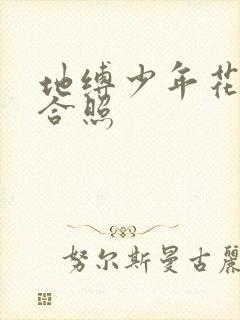 地缚少年花
合照
努尔斯曼古丽